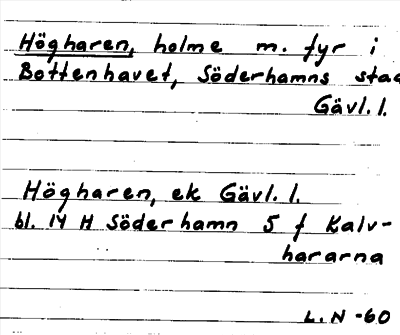 Högharen, holme m. fyr i
Bottenhavet, Söderhamns stad
Gävl. l.
Högharen, ek Gävl. l.
bl. 14 H Söderhamn 5 f Kalv-
hararna
L. N -60